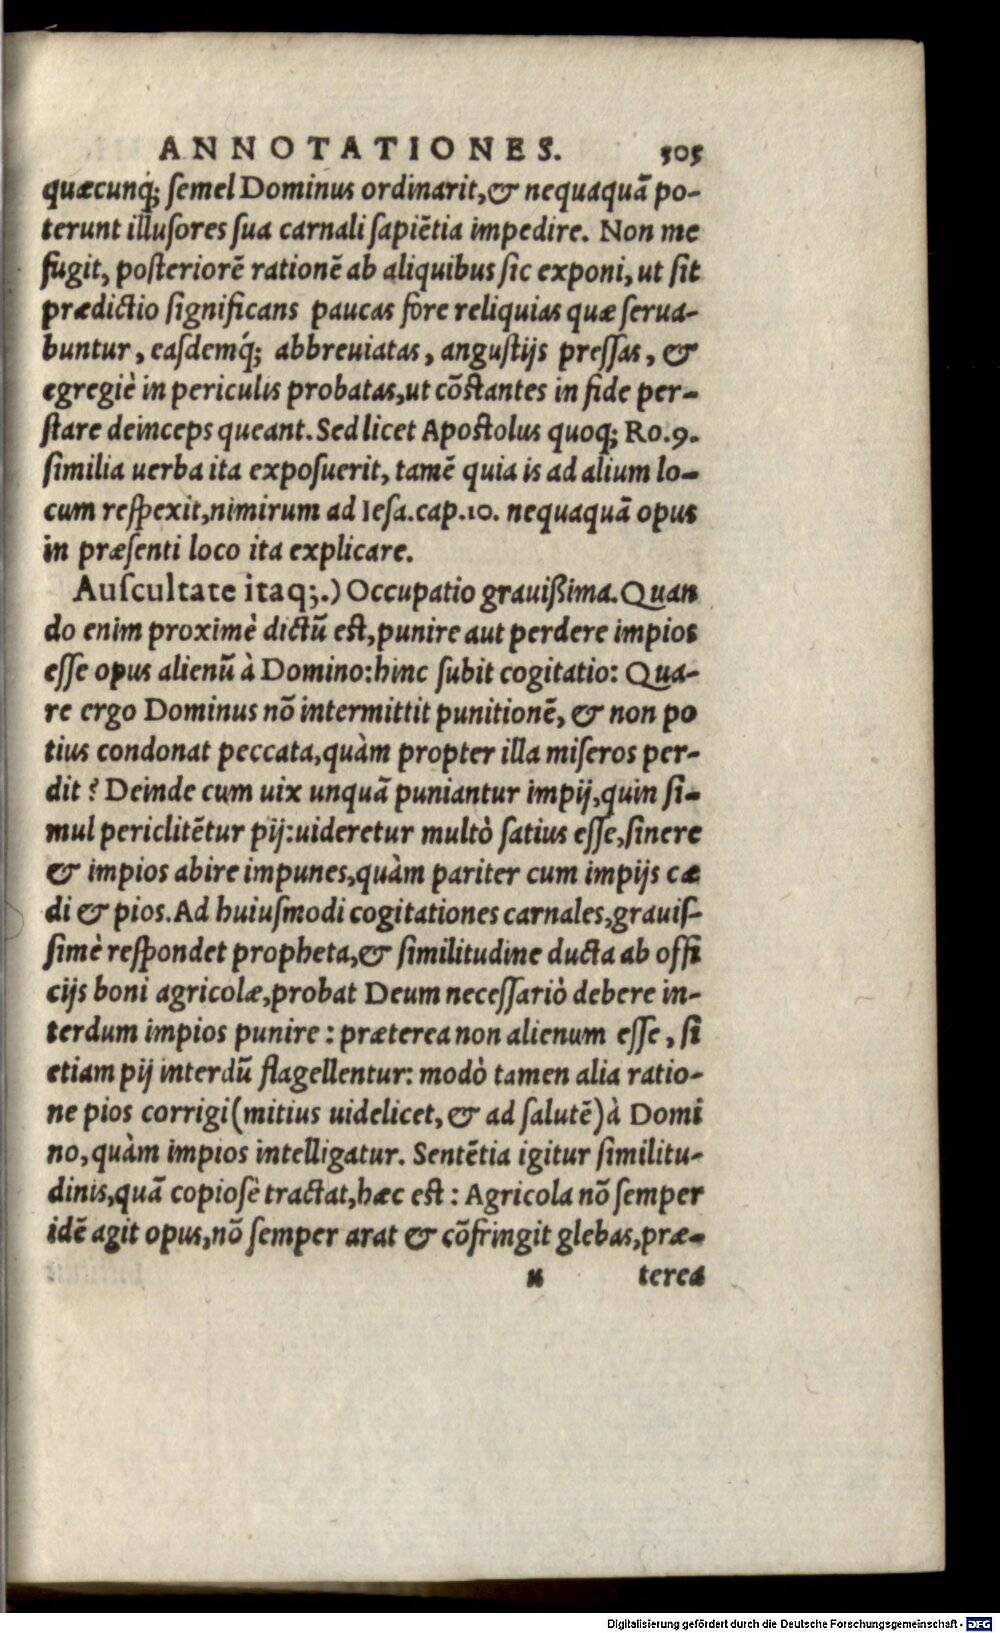 ANNOTATIONES. 305
quæcunq́; ſemel Dominus ordinarit,& nequaquā po-
terunt illuſores ſua carnali ſapiētia impedire. Non me
fugit, poſteriorē rationē ab aliquibus ſic exponi, ut ſit
prædictio ſignificans paucas fore reliquias quæ ſerua-
buntur, eaſdemq́; abbreuiatas, anguſtijs preſſas, &
egregiè in periculis probatas,ut cōſtantes in fide per-
ſtare deinceps queant. Sed licet Apoſtolus quoq; Ro.9.
ſimilia uerba ita expoſuerit, tamē quia is ad alium lo-
cum reſpexit,nimirum ad Ieſa.cap.10. nequaquā opus
in præſenti loco ita explicare.
Auſcultate itaq;.) Occupatio grauiſſima. Quan
do enim proximè dictū eſt, punire aut perdere impios
eſſe opus alienū à Domino: hinc ſubit cogitatio: Qua-
re ergo Dominus nō intermittit punitionē, & non po
tius condonat peccata,quàm propter illa miſeros per-
dit? Deinde cum uix unquā puniantur impij,quin ſi-
mul periclitētur pij: uideretur multò ſatius eſſe,ſinere
& impios abire impunes,quàm pariter cum impijs cæ
di & pios. Ad huiuſmodi cogitationes carnales,grauiſ-
ſimè reſpondet propheta,& ſimilitudine ducta ab offi
cijs boni agricolæ,probat Deum neceſſariò debere in-
terdum impios punire: præterea non alienum eſſe, ſi
etiam pij interdū flagellentur: modò tamen alia ratio-
ne pios corrigi (mitius uidelicet, & ad ſalutē) à Domi
no,quàm impios intelligatur. Sentētia igitur ſimilitu-
dinis,quā copioſè tractat,hæc eſt: Agricola nō ſemper
idē agit opus,nō ſemper arat & cōfringit glebas,præ-
u terea
Digitalisierung gefördert durch die Deutsche Forschungsgemeinschaft - DFG